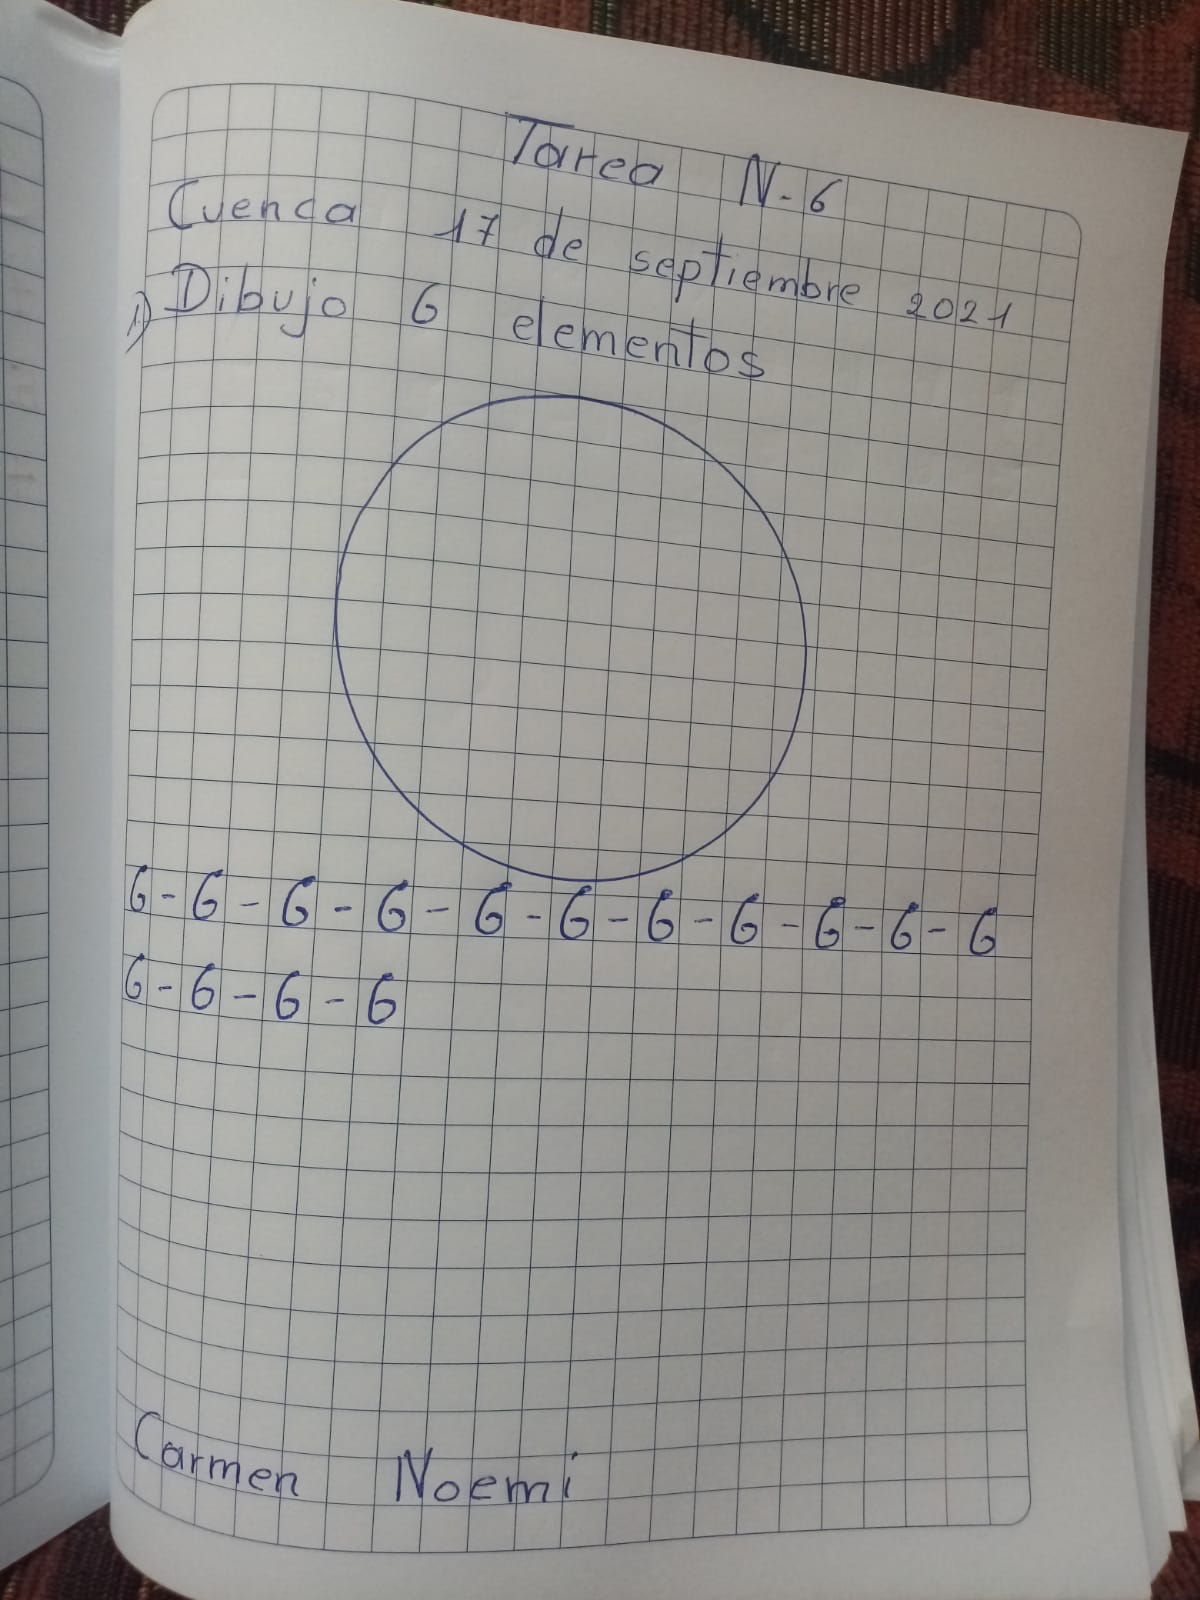 Tarea N-6
Cuenca 17 de septiembre 2021
1) Dibujo 6 elementos
6-6-6-6-6-6-6-6-6-6-6
6-6-6-6
Carmen Noemi